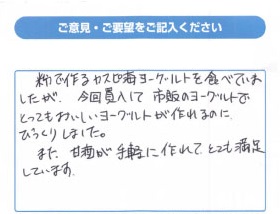 ご意見・ご要望をご記入ください
粉で作るカスピ海ヨーグルトを食べていま
したが、今回買入して市販のヨーグルトで
とってもおいしいヨーグルトが作れるのに
びっくりしました。
また、甘酒が手軽に作れて、とても満足
しています。